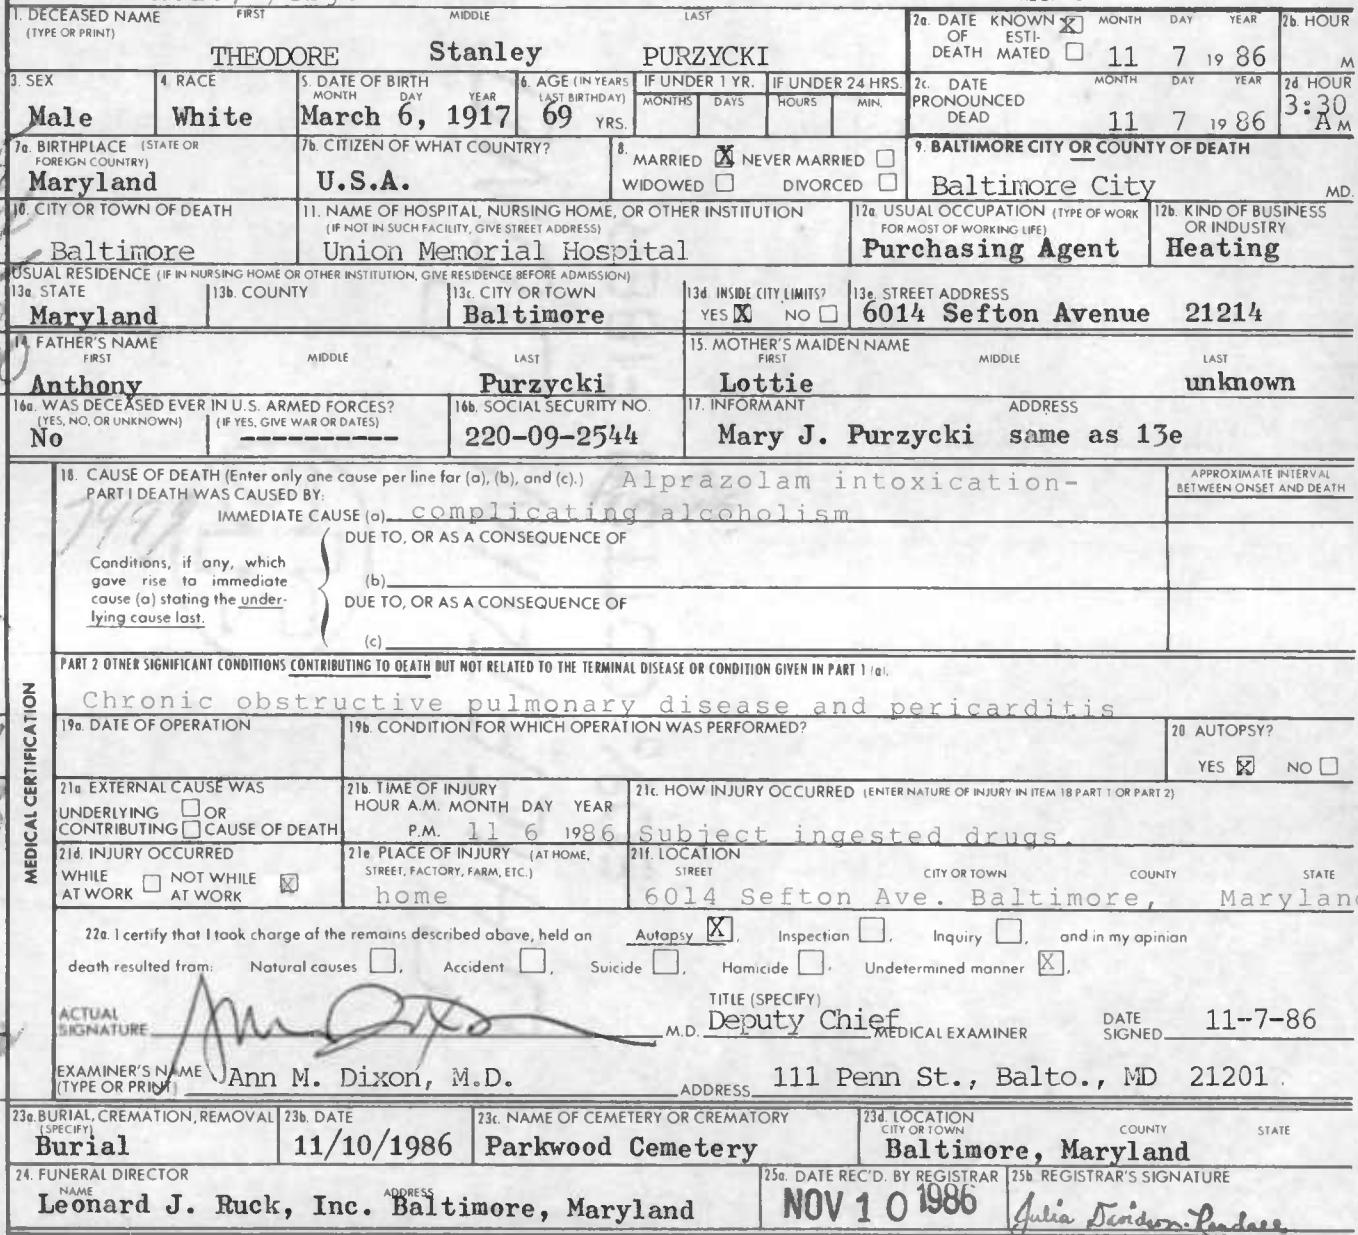 1. DECEASED NAME (TYPE OR PRINT) FIRST MIDDLE LAST
THEODORE Stanley PURZYCKI
2a. DATE OF DEATH KNOWN X ESTIMATED MONTH DAY YEAR
11 7 1986
2b. HOUR M
3. SEX
Male
4. RACE
White
5. DATE OF BIRTH MONTH DAY YEAR
March 6, 1917
6. AGE (IN YEARS LAST BIRTHDAY)
69 YRS.
IF UNDER 1 YR. MONTHS DAYS
IF UNDER 24 HRS. HOURS MIN.
2c. DATE PRONOUNCED DEAD MONTH DAY YEAR
11 7 1986
2d HOUR
3:30 A M
7a. BIRTHPLACE (STATE OR FOREIGN COUNTRY)
Maryland
7b. CITIZEN OF WHAT COUNTRY?
U.S.A.
8. MARRIED X NEVER MARRIED
WIDOWED DIVORCED
9. BALTIMORE CITY OR COUNTY OF DEATH
Baltimore City MD.
10. CITY OR TOWN OF DEATH
Baltimore
11. NAME OF HOSPITAL, NURSING HOME, OR OTHER INSTITUTION
(IF NOT IN SUCH FACILITY, GIVE STREET ADDRESS)
Union Memorial Hospital
12a. USUAL OCCUPATION (TYPE OF WORK FOR MOST OF WORKING LIFE)
Purchasing Agent
12b. KIND OF BUSINESS OR INDUSTRY
Heating
USUAL RESIDENCE (IF IN NURSING HOME OR OTHER INSTITUTION, GIVE RESIDENCE BEFORE ADMISSION)
13a. STATE
Maryland
13b. COUNTY
13c. CITY OR TOWN
Baltimore
13d. INSIDE CITY LIMITS?
YES X NO
13e. STREET ADDRESS
6014 Sefton Avenue 21214
14. FATHER'S NAME FIRST MIDDLE LAST
Anthony Purzycki
15. MOTHER'S MAIDEN NAME FIRST MIDDLE LAST
Lottie unknown
16a. WAS DECEASED EVER IN U.S. ARMED FORCES?
(YES, NO, OR UNKNOWN) (IF YES, GIVE WAR OR DATES)
No ----------
16b. SOCIAL SECURITY NO.
220-09-2544
17. INFORMANT ADDRESS
Mary J. Purzycki same as 13e
18. CAUSE OF DEATH (Enter only one cause per line for (a), (b), and (c).)
PART I DEATH WAS CAUSED BY:
IMMEDIATE CAUSE (a) Alprazolam intoxication-
complicating alcoholism
APPROXIMATE INTERVAL BETWEEN ONSET AND DEATH
Conditions, if any, which
gave rise to immediate
cause (a) stating the under-
lying cause last.
DUE TO, OR AS A CONSEQUENCE OF
(b)
DUE TO, OR AS A CONSEQUENCE OF
(c)
MEDICAL CERTIFICATION
PART 2 OTHER SIGNIFICANT CONDITIONS CONTRIBUTING TO DEATH BUT NOT RELATED TO THE TERMINAL DISEASE OR CONDITION GIVEN IN PART 1 (a).
Chronic obstructive pulmonary disease and pericarditis
19a. DATE OF OPERATION
19b. CONDITION FOR WHICH OPERATION WAS PERFORMED?
20 AUTOPSY?
YES X NO
21a EXTERNAL CAUSE WAS
UNDERLYING OR
CONTRIBUTING CAUSE OF DEATH
21b. TIME OF INJURY
HOUR A.M. MONTH DAY YEAR
P.M. 11 6 1986
21c. HOW INJURY OCCURRED (ENTER NATURE OF INJURY IN ITEM 18 PART 1 OR PART 2)
Subject ingested drugs.
21d. INJURY OCCURRED
WHILE AT WORK NOT WHILE AT WORK X
21e PLACE OF INJURY (AT HOME, STREET, FACTORY, FARM, ETC.)
home
21f. LOCATION STREET CITY OR TOWN COUNTY STATE
6014 Sefton Ave. Baltimore, Maryland
22a. I certify that I took charge of the remains described above, held an Autopsy X, Inspection , Inquiry , and in my opinion
death resulted from: Natural causes , Accident , Suicide , Homicide , Undetermined manner X.
ACTUAL SIGNATURE M.D.
TITLE (SPECIFY)
Deputy Chief MEDICAL EXAMINER
DATE SIGNED 11-7-86
EXAMINER'S NAME (TYPE OR PRINT) Ann M. Dixon, M.D.
ADDRESS 111 Penn St., Balto., MD 21201.
23a. BURIAL, CREMATION, REMOVAL (SPECIFY)
Burial
23b. DATE
11/10/1986
23c. NAME OF CEMETERY OR CREMATORY
Parkwood Cemetery
23d. LOCATION CITY OR TOWN COUNTY STATE
Baltimore, Maryland
24. FUNERAL DIRECTOR NAME ADDRESS
Leonard J. Ruck, Inc. Baltimore, Maryland
25a. DATE REC'D. BY REGISTRAR
NOV 10 1986
25b. REGISTRAR'S SIGNATURE
Julia Davidson-Randall